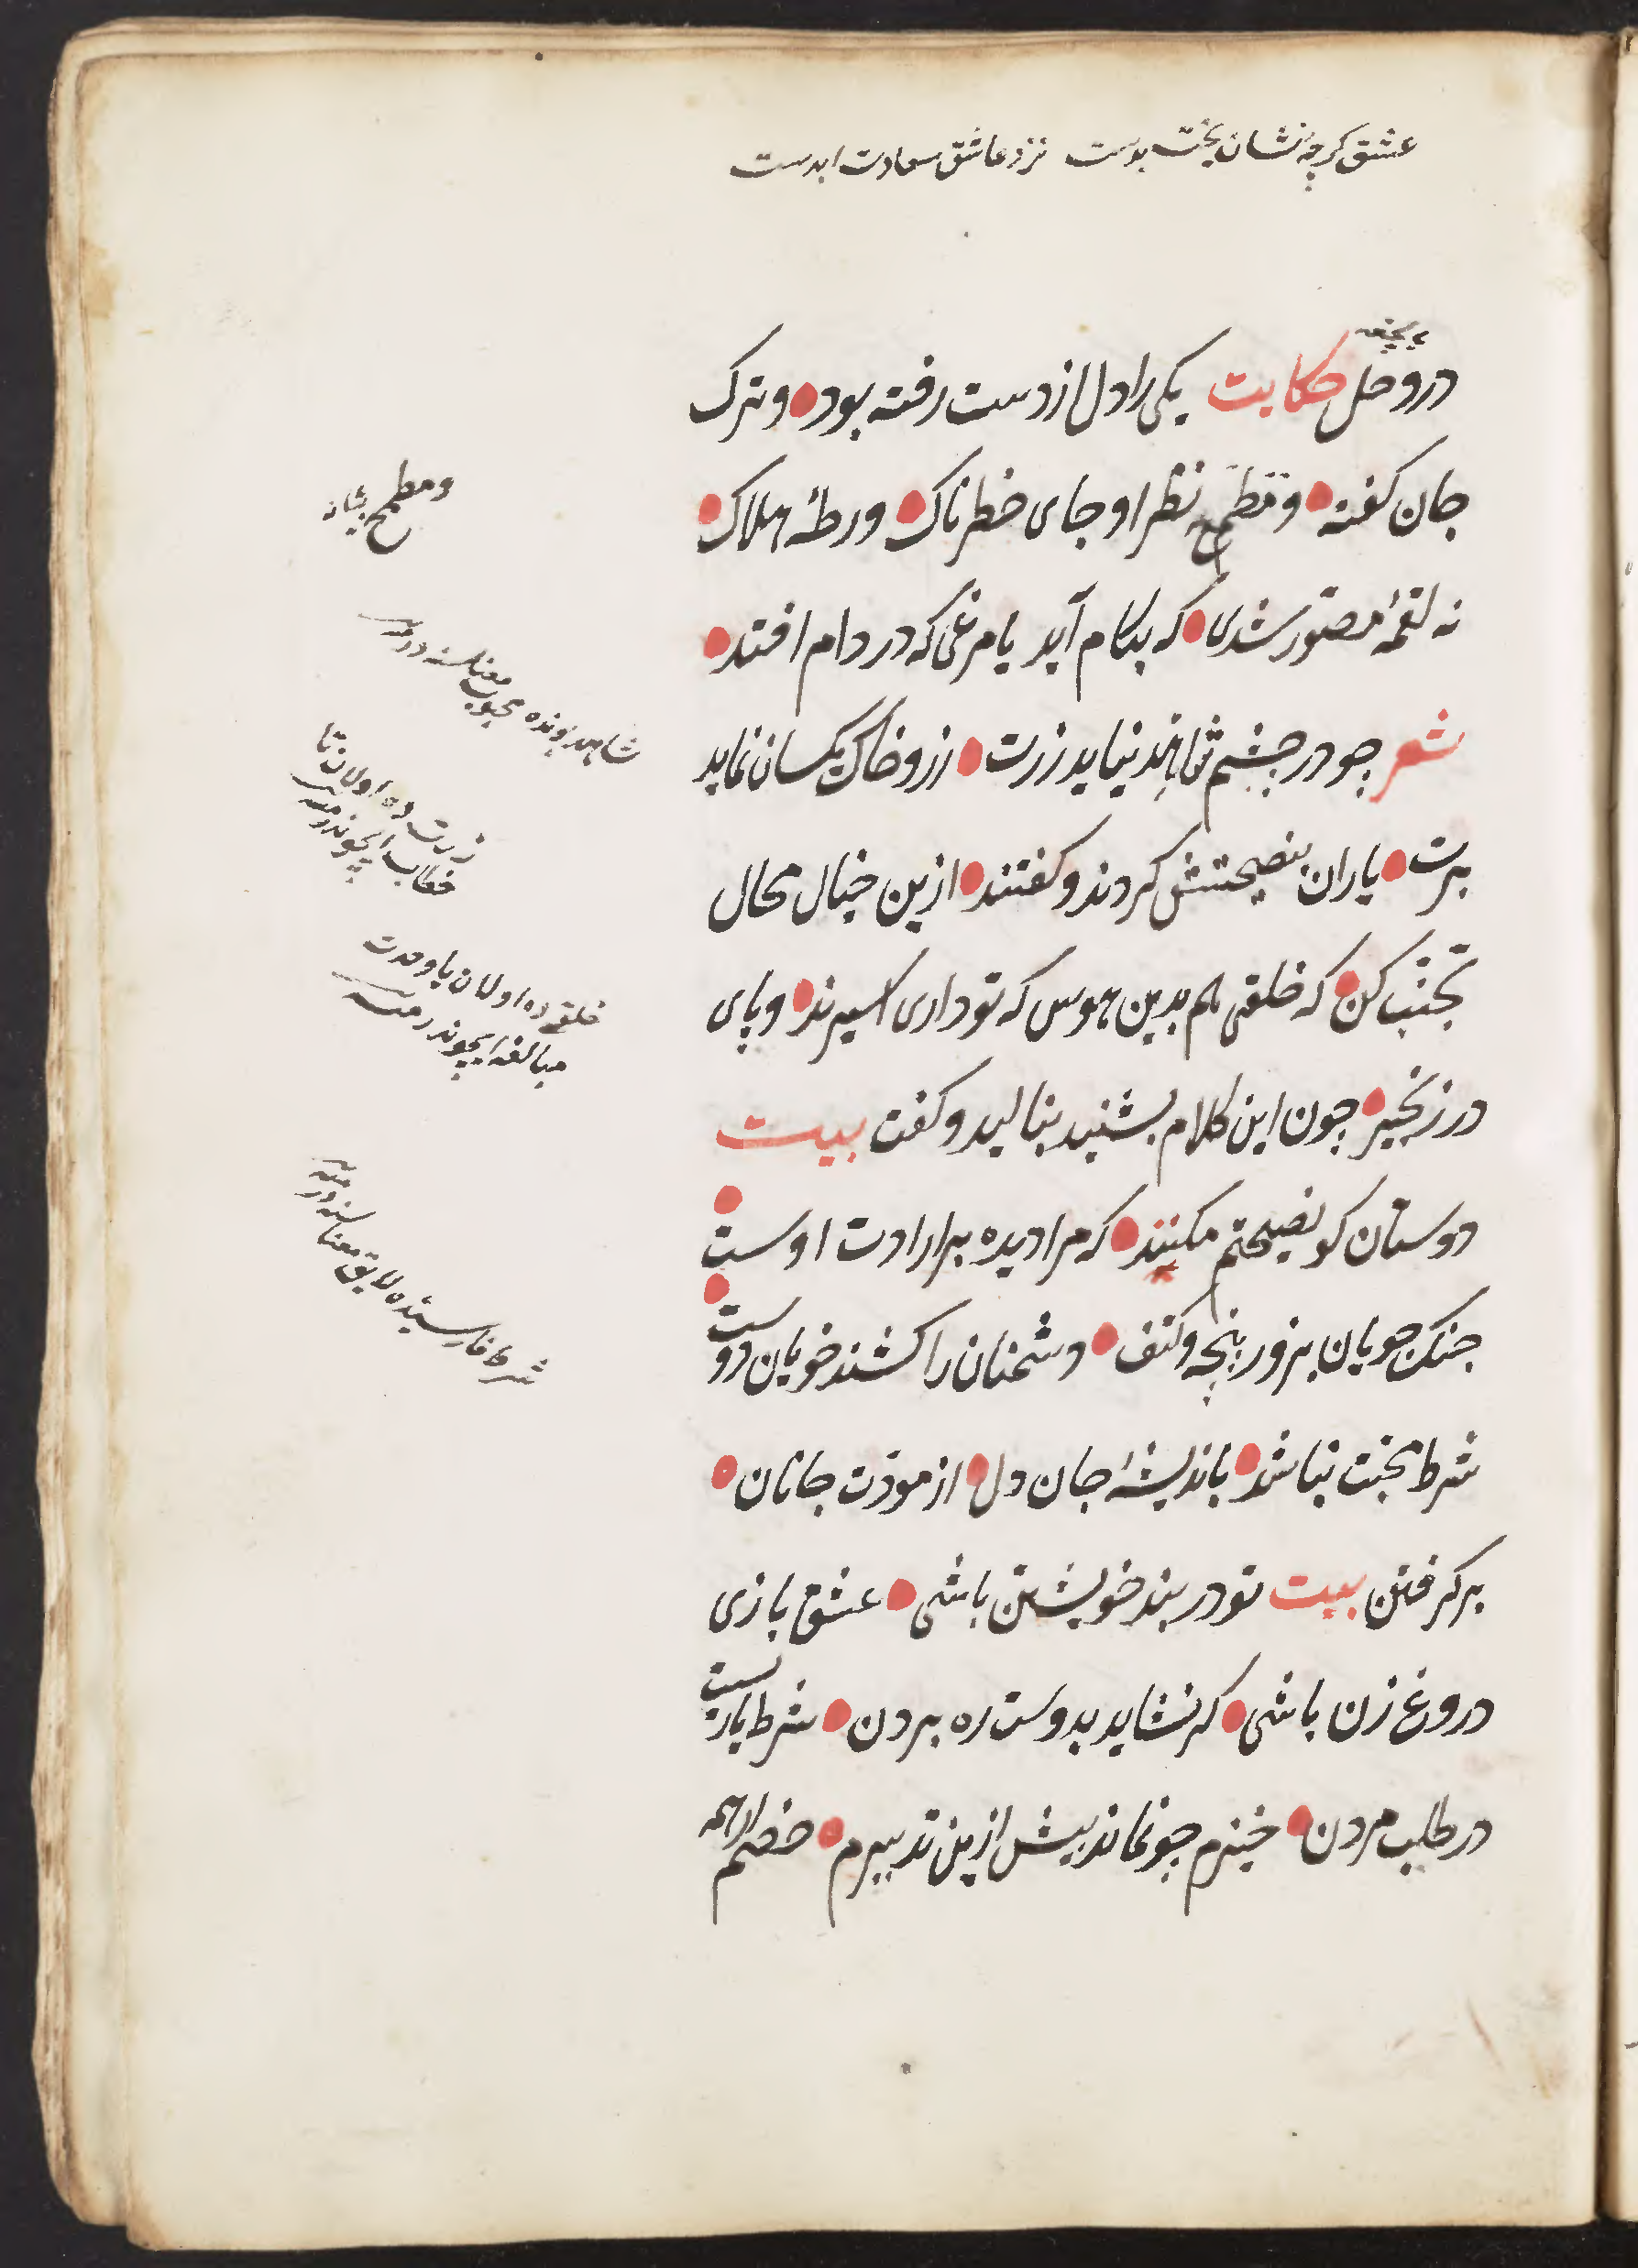 عشق کرچه نشان بدست نزد عاشق سعادت ابدست
در وحل حکایت یکی را دل از دست رفته بود و ترک
جان کفته و مطمح نظر او جای خطرناک ورطهٔ هلاک
نه لقمهٔ مصور شدی که بکام آید یا مرغی که در دام افتد
شعر جو در جشم شاهد نیاید زرت زر و خاک یکسان نماید
برت یاران بنصیحتش کردند و کفتند ازین خیال محال
تجنب کن که خلقی هم بدین هوس که تو داری اسیرند و پای
در زنجیر جون این کلام بشنید بنالید و کفت بیت
دوستان کو نصیحتم مکنید که مرا دیده بر ارادت اوست
جنک جویان بزور پنجه و کتف دشمنان را کشند خوبان دوست
شرط محبت نباشد باندیشهٔ جان دل از مودت جانان
برکرفتن بیت تو در بند خویشتن باشی عشق بازی
دروغ زن باشی کر نشاید بدوست ره بردن شرط یاریست
در طلب مردن خیزم جو نماند بیش ازین تدبیرم خصم ار همه
ومطمح
شاهد بونده محبوب معناسنه در
زرت ده اولان تا
خطاب ایچوندر
خلقی ده اولان یا وحدت
مبالغه ایچوندر
شرط فارسیده لایق معناسنه در